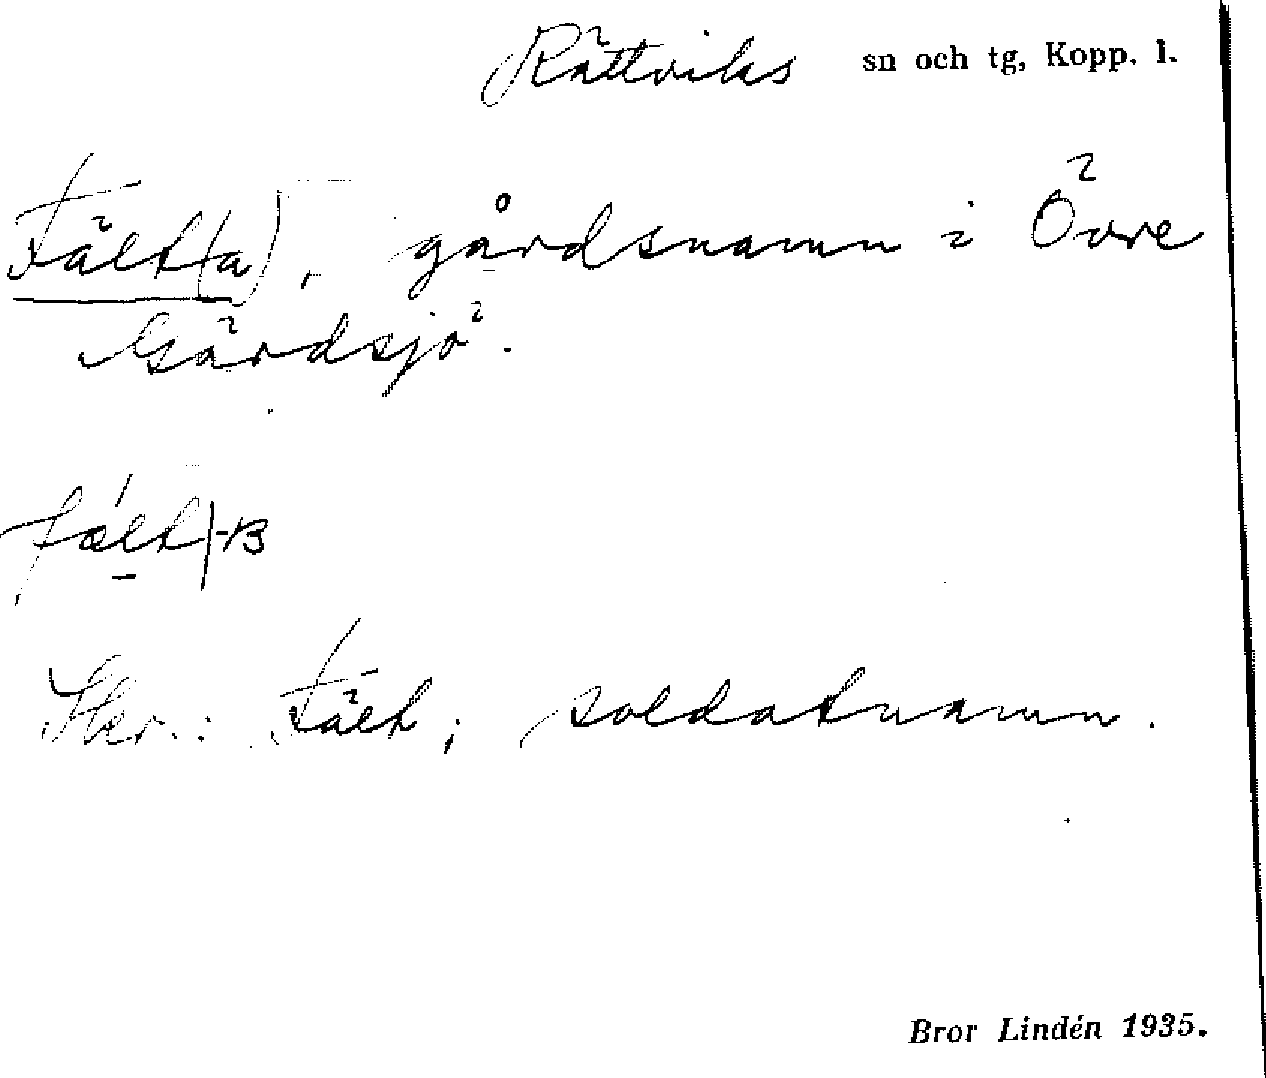 Rättviks sn och tg, Kopp. l.
Fält(a), gårdsnamn i Övre
Gärdsjö.
fælt|-B
Skr.: Fält; soldatnamn.
Bror Lindén 1935.